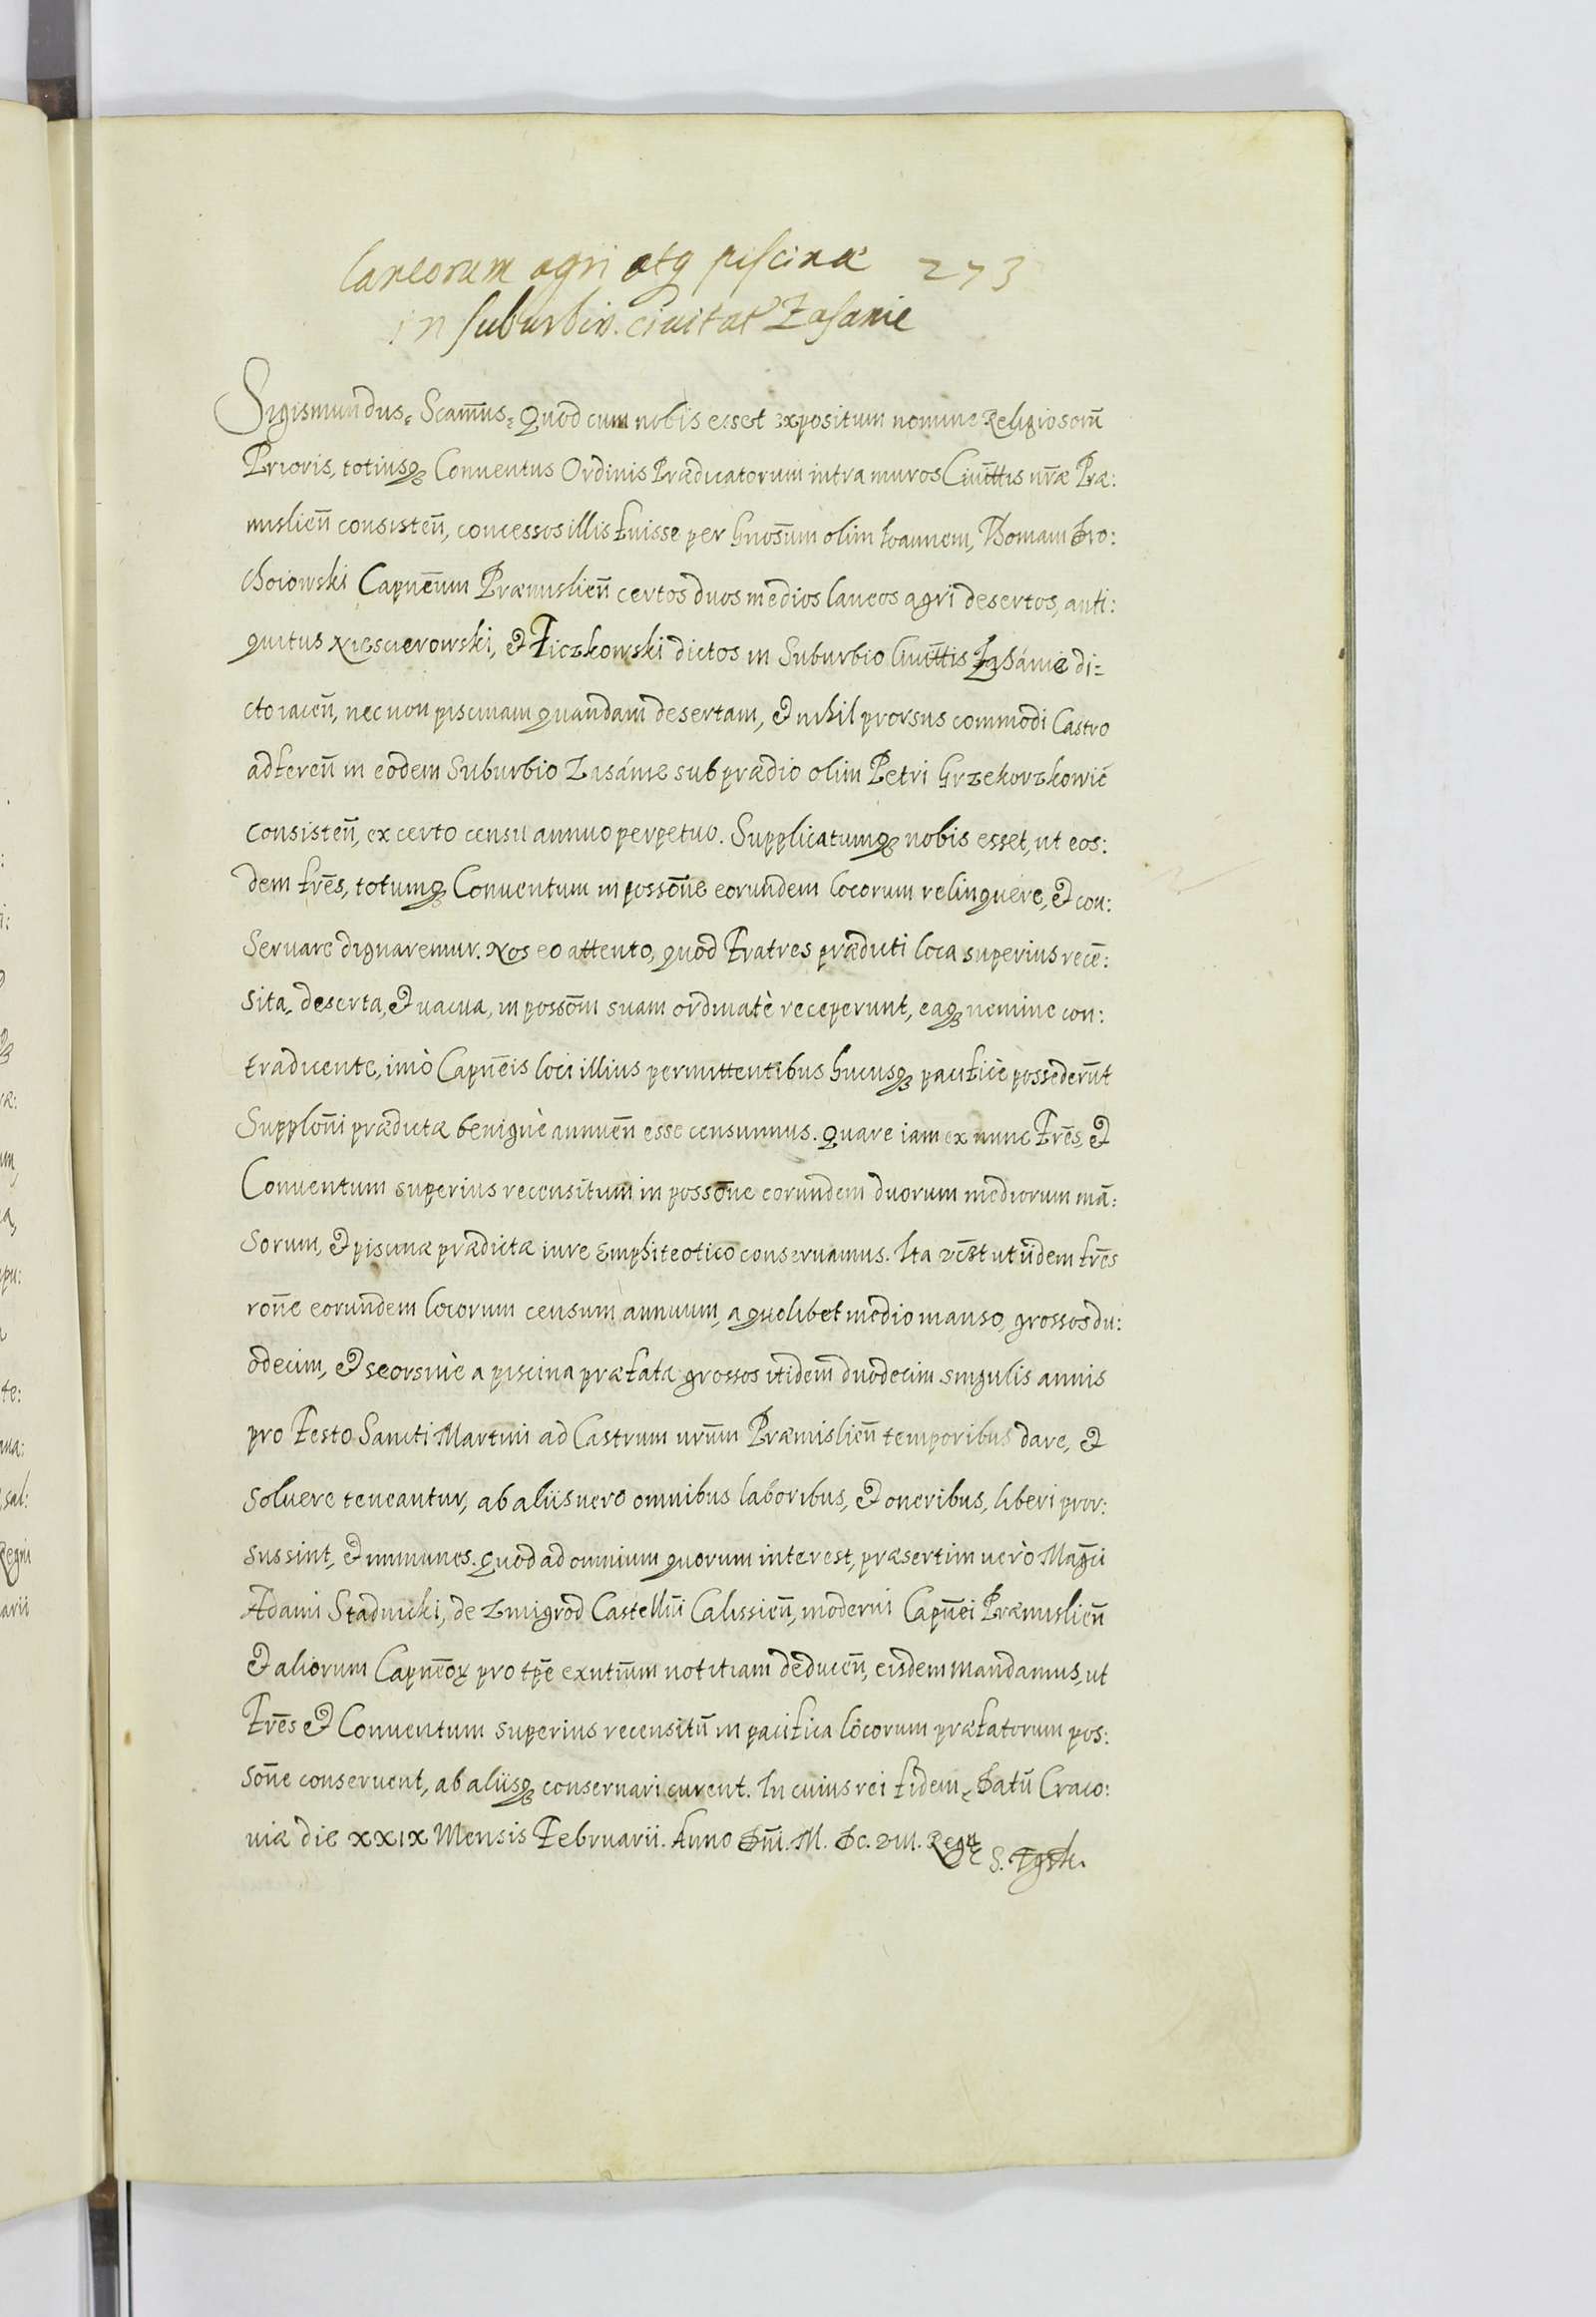 laneorum agri atq piscinæ 273
in suburbio. ciuitat Zasanie
Sigismundus. Scam̃us. Quod cum nobis esset expositum nomine Religiosorũ
Prioris, totiusq Conuentus Ordinis Prædicatorum intra muros Ciuittis nr̃æ Præ:
misslieñ consisteñ, concessos illis fuisse per Gnosũm olim Ioannem, Thomam Dro:
hoiowski Capnẽum Præmislieñ certos duos medios laneos agri desertos, anti:
quitus Niescierowski, & Ficzkowski dictos in Suburbio Ciuittis Zasánie di=
cto iaceñ, nec non piscinam quandam desertam, & nihil prorsus commodi Castro
adfereñ in eodem Suburbio Zasánie sub prædio olim Petri Grzekorzkowic
consisteñ, ex certo censu annuo perpetuo. Supplicatumq nobis esset, ut eos:
dem fres̃, totumq Conuentum in possoñe eorundem locorum relinquere, & con:
seruare dignaremur. Nos eo attento, quod Fratres prædicti loca superius recẽ:
sita, deserta, & uacua, in possom̃ suam ordinatè receperunt, eaq nemine con:
tradicente, imò Capnẽis loci illius permittentibus hucusq pacificè possederũt
Supploñi prædictæ benignè annueñ esse censuimus. Quare iam ex nunc Fres̃, &
Conuentum superius recensitum in possoñe eorundem duorum mediorum mã:
sorum, & piscinæ prædictæ iure Emphiteotico conseruamus. Ita vcꝫt ut ijdem fres̃
roñe eorundem locorum censum annuum, a quolibet medio manso, grossos du:
odecim, & seorsiuè a piscina præfata grossos itidem duodecim singulis annis
pro Festo Sancti Martini ad Castrum nrũm Præmislieñ temporibus dare, &
soluere teneantur, ab aliis uero omnibus laboribus, & oneribus, liberi pror:
sus sint, & immunes. Quod ad omnium quorum interest, præsertim uerò Magc̃i
Adami Stadnicki, de Zmigrod Castellñi Calissieñ, moderni Capnẽi Præmislieñ
& aliorum Capneoꝝ pro tp̃e exntium notitiam deduceñ, eisdem mandamus, ut
Fres̃ & Conuentum superius recensitũ in pacifica locorum præfatorum pos:
soñe conseruent, ab aliisq conseruari curent. In cuius rei fidem. Datũ Craco:
uiæ die XXIX Mensis Februarii. Anno Dñi. M. Dc. VIII. Regñ